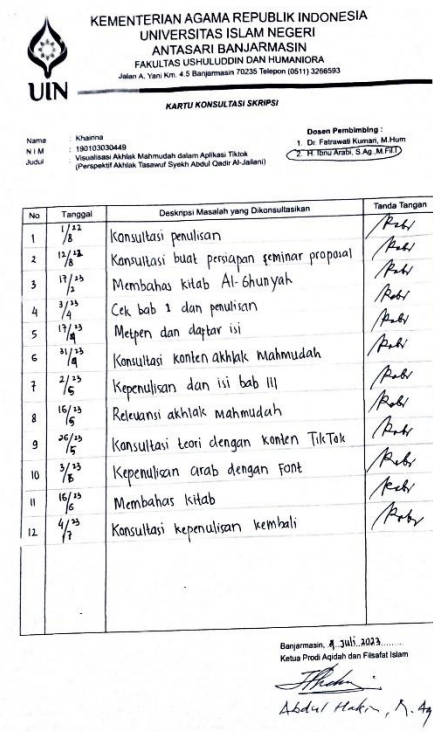 KEMENTERIAN AGAMA REPUBLIK INDONESIA
UNIVERSITAS ISLAM NEGERI
ANTASARI BANJARMASIN
FAKULTAS USHULUDDIN DAN HUMANIORA
Jalan A. Yani Km. 4.5 Banjarmasin 70235 Telepon (0511) 3266593
UIN
KARTU KONSULTASI SKRIPSI
Nama : Khainna
N I M : 190103030449
Judul : Visualisasi Akhlak Mahmudah dalam Aplikasi Tiktok
(Perspektif Akhlak Tasawuf Syekh Abdul Qadir Al-Jailani)
Dosen Pembimbing :
1. Dr. Fatrawati Kumari, M.Hum
2. H. Ibnu Arabi, S.Ag.,M.Fil.I
No Tanggal Deskripsi Masalah yang Dikonsultasikan Tanda Tangan
1 1/22/8 Konsultasi penulisan
2 12/22/8 Konsultasi buat persiapan seminar proposal
3 17/23/2 Membahas kitab Al-Ghunyah
4 3/23/4 Cek bab 1 dan penulisan
5 17/23/4 Metpen dan daftar isi
6 31/23/4 Konsultasi konten akhlak mahmudah
7 2/23/5 Kepenulisan dan isi bab III
8 16/23/5 Relevansi akhlak mahmudah
9 26/23/5 Konsultasi teori dengan konten TikTok
10 3/23/6 Kepenulisan arab dengan font
11 16/23/6 Membahas kitab
12 4/23/7 Konsultasi kepenulisan kembali
Banjarmasin, Juli 2023
Ketua Prodi Aqidah dan Filsafat Islam
Abdul Hakim, M.Ag